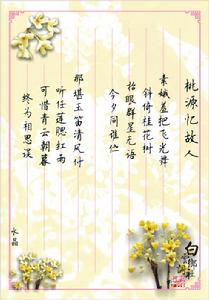 桃源忆故人
素娥羞把飞光舞
斜倚桂花树
抬眼群星无语
今夕同谁伫
那堪玉笛清风付
听任莲腮红雨
可惜青云朝暮
终为相思误
水晶